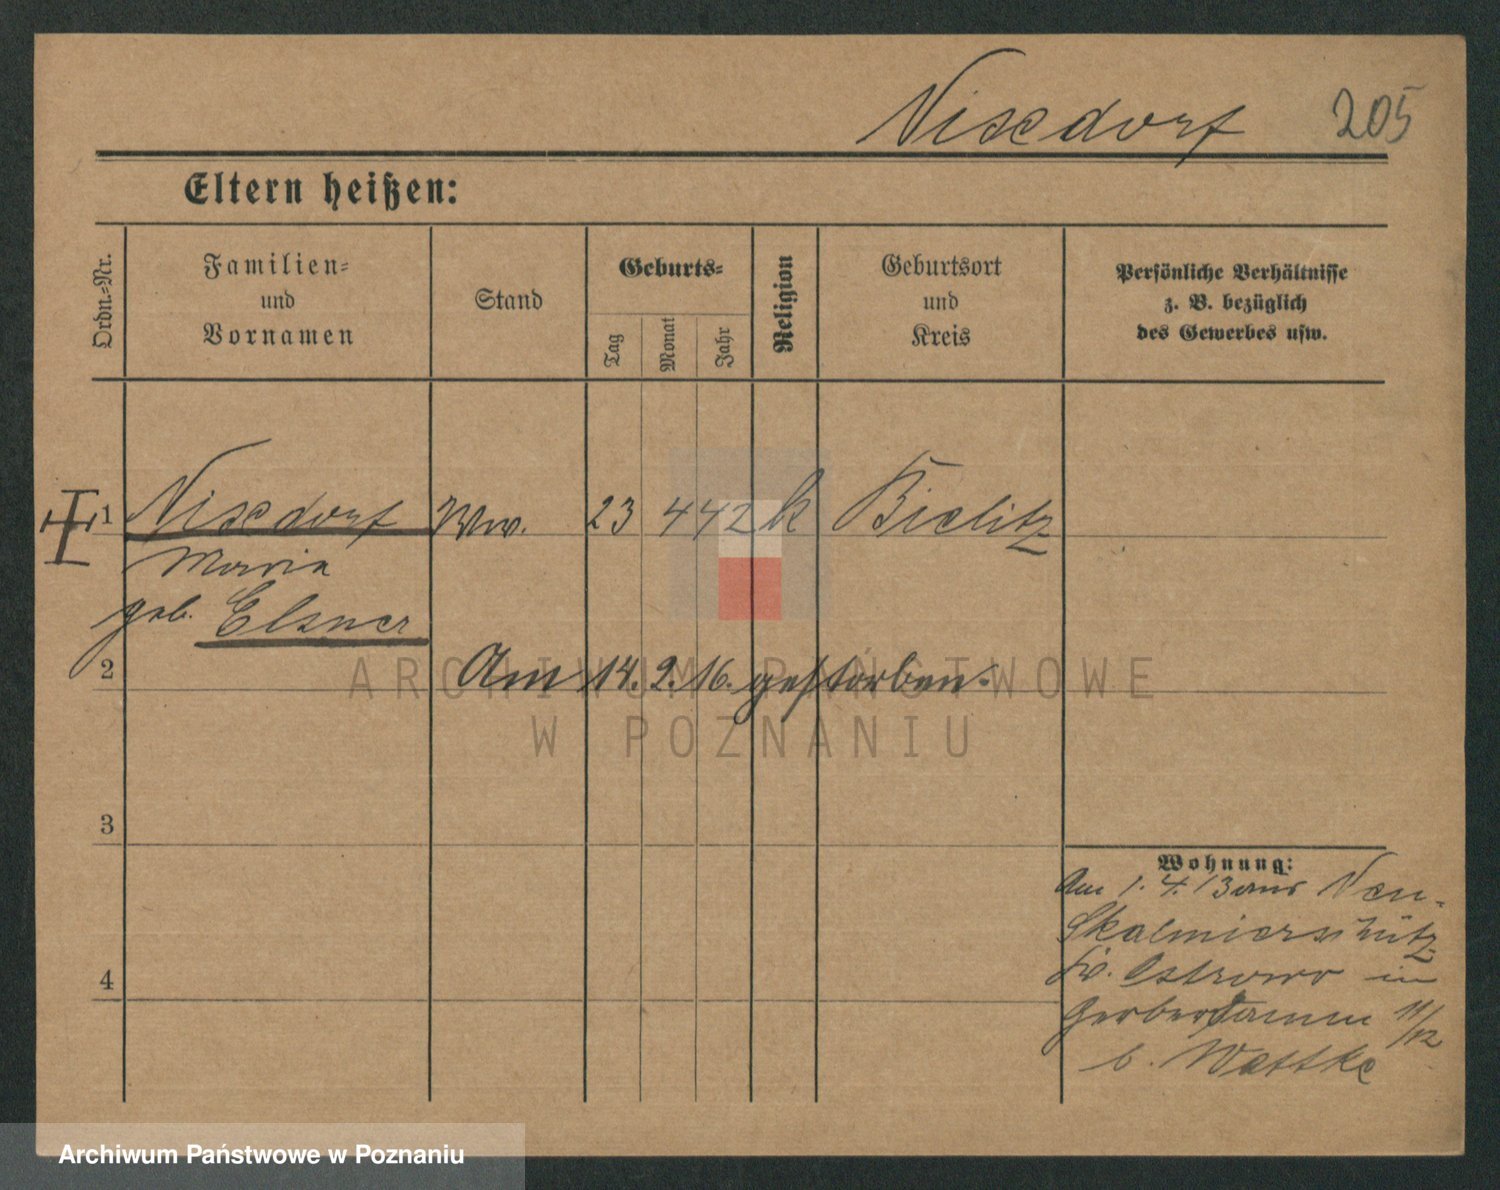 Nixdorf 205
Eltern heißen:
Ordn.-Nr.
Familien-
und
Vornamen
Stand
Geburts-
Tag
Monat
Jahr
Religion
Geburtsort
und
Kreis
Persönliche Verhältnisse
z. B. bezüglich
des Gewerbes usw.
1 Nixdorf Ww. 23 4 42 k Bielitz
Maria
geb. Elsner
2 Am 14. 2. 16. gestorben.
3
4
Wohnung:
Am 1. 4. 13 aus Neu-
Skalmierschütz
Kr. Ostrowo in
Gerberdamm 11/12
b. Wattke
ARCHIWUM PAŃSTWOWE
W POZNANIU
Archiwum Państwowe w Poznaniu